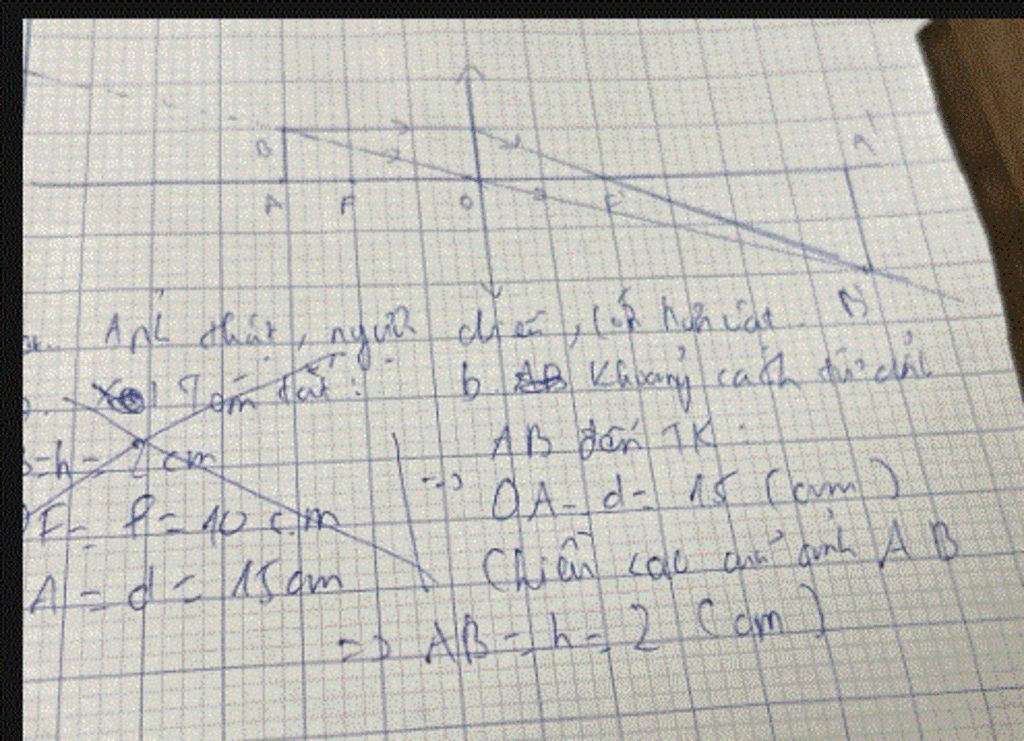 B
A'
A F O F
B'
Ảnh thật, ngược chiều, lớn hơn vật
Tóm tắt:
b Khoảng cách từ
= h = 2 cm
AB đến TK
F = f = 10 cm
=> OA = d = 15 (cm)
A = d = 15 cm
Chiều cao của ảnh AB
=> AB = h = 2 (cm)